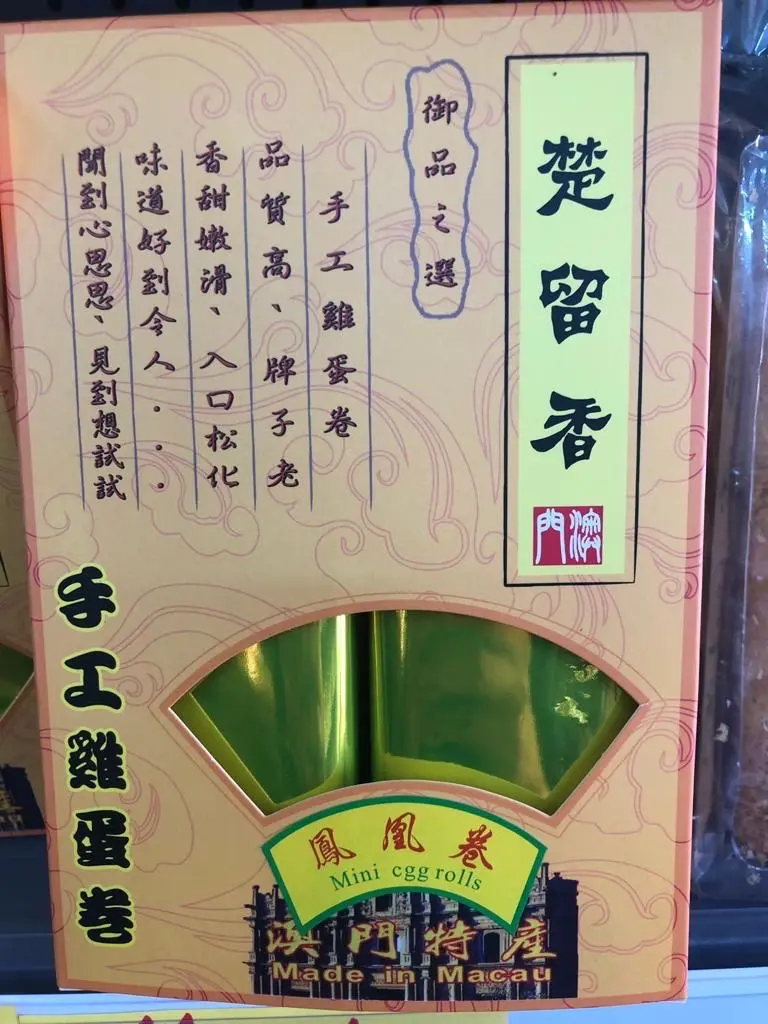 楚留香
澳門
御品之選
手工雞蛋卷
品質高、牌子老
香甜嫩滑、入口松化
味道好到令人...
聞到心思思、見到想試試
手工雞蛋卷
鳳凰卷
Mini cgg rolls
澳門特產
Made in Macau